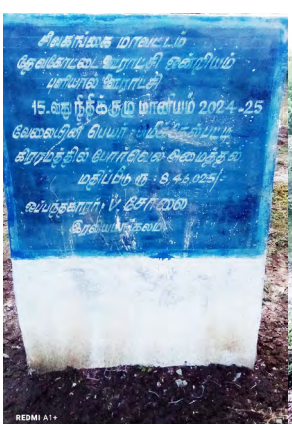 சிவகங்கை மாவட்டம்
தேவகோட்டை ஊராட்சி ஒன்றியம்
புளியால் ஊராட்சி
15-வது நிதிக்குழு மானியம் 2024-25
வேலையின் பெயர்:
கிராமத்தில் போர்வெல் அமைத்தல்
மதிப்பீடு ரூ: 8,46,025/-
ஒப்பந்தகாரர்: P. சோலை
REDMI A1+